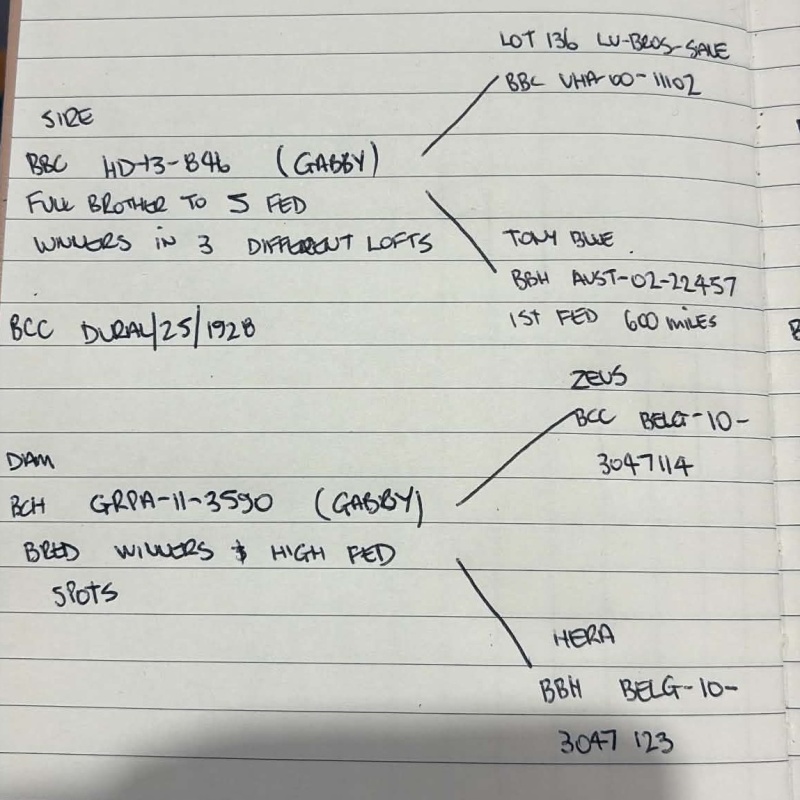 LOT 136 LU-BROS-SALE
BBC VHA-00-11102
SIRE
BBC HD-13-846 (GABBY)
FULL BROTHER TO 5 FED
WINNERS IN 3 DIFFERENT LOFTS
TONY BLUE
BBH AUST-02-22457
1ST FED 600 MILES
BCC DURAL/25/1928
ZEUS
BCC BELG-10-
3047114
DAM
BCH GRPA-11-3590 (GABBY)
BRED WINNERS & HIGH FED
SPOTS
HERA
BBH BELG-10-
3047 123